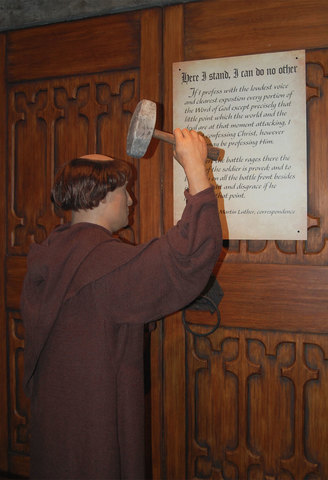 Here I stand, I can do no other
If I profess with the loudest voice
and clearest expostion every portion of
the Word of God except precisely that
little point which the world and the
devil are at that moment attacking, I
confessing Christ, however
be professing Him.
battle rages there the
the soldier is proved; and to
all the battle front besides
and disgrace if he
that point.
Martin Luther, correspondence